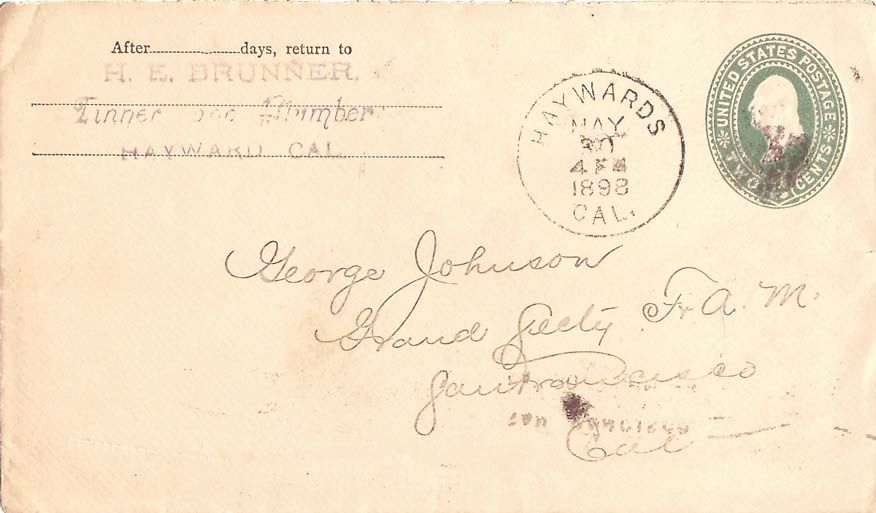 After ............ days, return to
H. E. BRUNNER,
Tinner and Plumber
HAYWARD CAL.
HAYWARDS
MAY
30
4 PM
1898
CAL.
UNITED STATES POSTAGE
TWO CENTS
George Johnson
Grand Secty F. A. M.
San Francisco
San Francisco
Cal